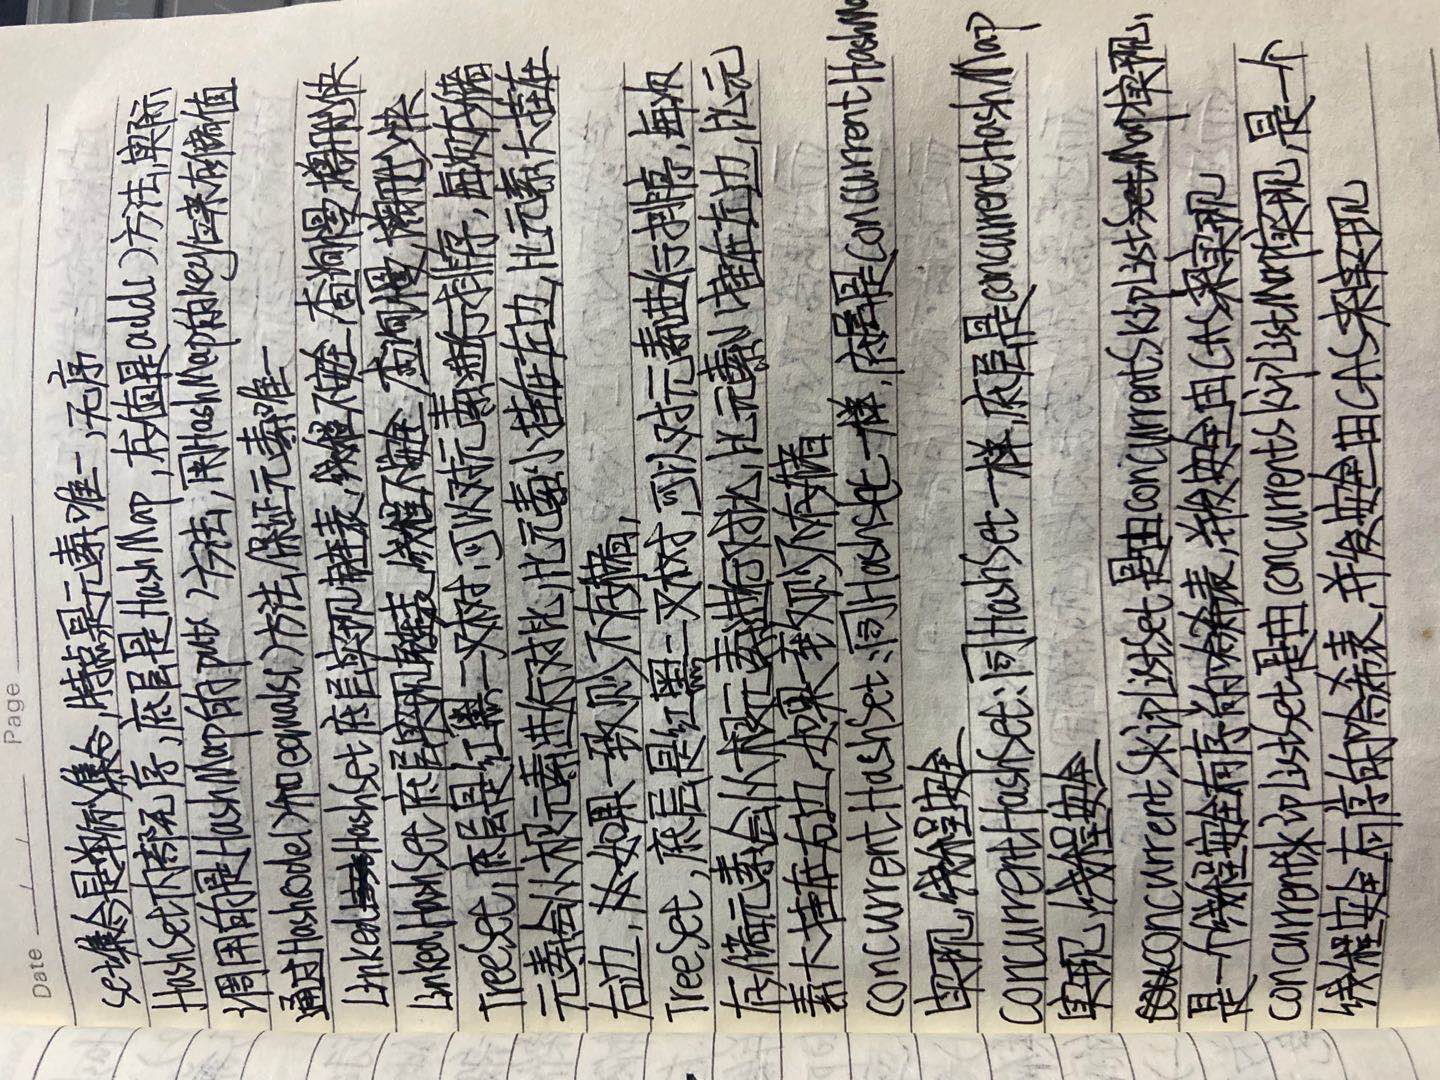 Date / / Page
set集合是单列集合,特点是元素唯一,无序
HashSet内部无序,底层是HashMap,存值是add()方法,实际
调用的是HashMap的put()方法,用HashMap的key位来存储值
通过Hashcode()和equals()方法,保证元素唯一
LinkedHashSet底层实现链表,线程不安全,查询慢,增删快
LinkedHashSet底层实现链表,线程不安全,查询慢,增删快
TreeSet,底层是红黑二叉树,可以对元素进行排序,每次存储
元素会从根元素进行对比,比元素小挂在左边,比元素大挂在
右边,如果一致则不存储,
TreeSet,底层是红黑二叉树,可以对元素进行排序,每次
存储元素会从根元素进行对比,比元素小挂在左边,比元
素大挂在右边,如果一致则不存储
concurrentHashSet:同HashSet一样,底层是concurrentHashMa
实现,线程安全
concurrentHashSet:同HashSet一样,底层是concurrentHashMap
实现,线程安全
concurrentSkipListSet是由concurrentSkipListMap实现,
是一个线程安全有序的哈希表,并发安全由CAS来实现
concurrentSkipListSet是由concurrentSkipListMap实现,是一个
线程安全有序的哈希表,并发安全由CAS来实现